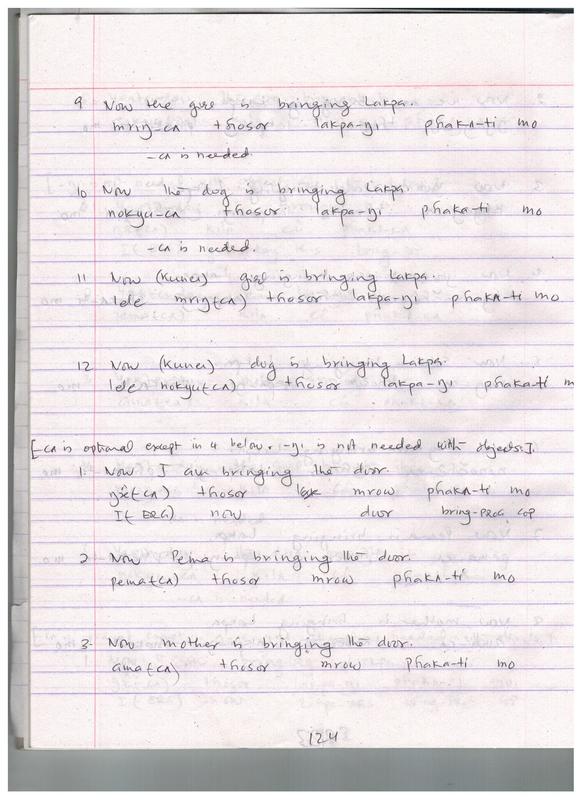 9 Now the girl is bringing Lakpa.
mriŋ-cʌ thosor lakpa-ŋi phakʌ-ti mo
-cʌ is needed.
10 Now the dog is bringing Lakpa.
nokyu-cʌ thosor lakpa-ŋi phaka-ti mo
-cʌ is needed.
11 Now (Kunei) girl is bringing Lakpa.
lele mriŋ(cʌ) thosor lakpa-ŋi phakʌ-ti mo
12 Now (Kunei) dog is bringing Lakpa.
lele nokyu(cʌ) thosor lakpa-ŋi phaka-ti m
[-cʌ is optional except in 4 below. -ŋi is not needed with objects.].
1. Now I am bringing the door.
(cʌ) thosor mrow phakʌ-ti mo
I(ERG) now door bring-PROG COP
2 Now Pema is bringing the door.
pema(cʌ) thosor mrow phakʌ-ti mo
3. Now mother is bringing the door.
ama(cʌ) thosor mrow phaka-ti mo
124